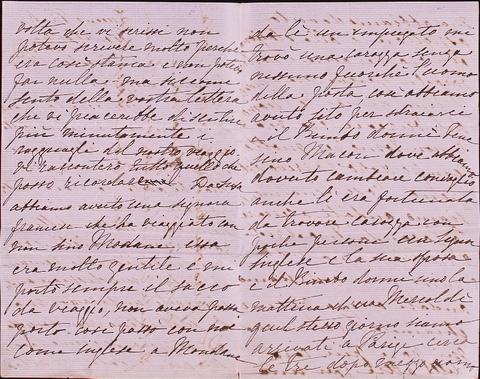 volta che vi scrissi non
potevo scrivere molto perchè
era così stanca e non potevo
far nulla - ma siccome
sento dalla vostra lettera
che vi piacerebbe di sentire
più minutamente i
ragguagli del nostro viaggio
vi racconterò tutto quello che
posso ricordare. Da Susa
abbiamo avuto una signora
francese che ha viaggiato con
noi sino Modane, essa
era molto gentile e mi
portò sempre il sacco
da viaggio, non aveva passa
porto così passò con noi
come inglese a Modane
da lì un impiegato mi
trovò una carozza senza
nessuno fuorchè l'uomo
della posta così abbiamo
avuto sito per sdraiarsi
e il Bimbo dormì fin
sino Macon dove abbiamo
dovuto cambiare convoglio
anche lì era fortunata
da trovare carozza con
poche persone era signor
Inglese e la sua sposa
e il Bimbo dormì uno la
mattina che era Mercoldì
quel stesso giorno siamo
arrivati a Parigi circa
le tre dopo mezzo giorno